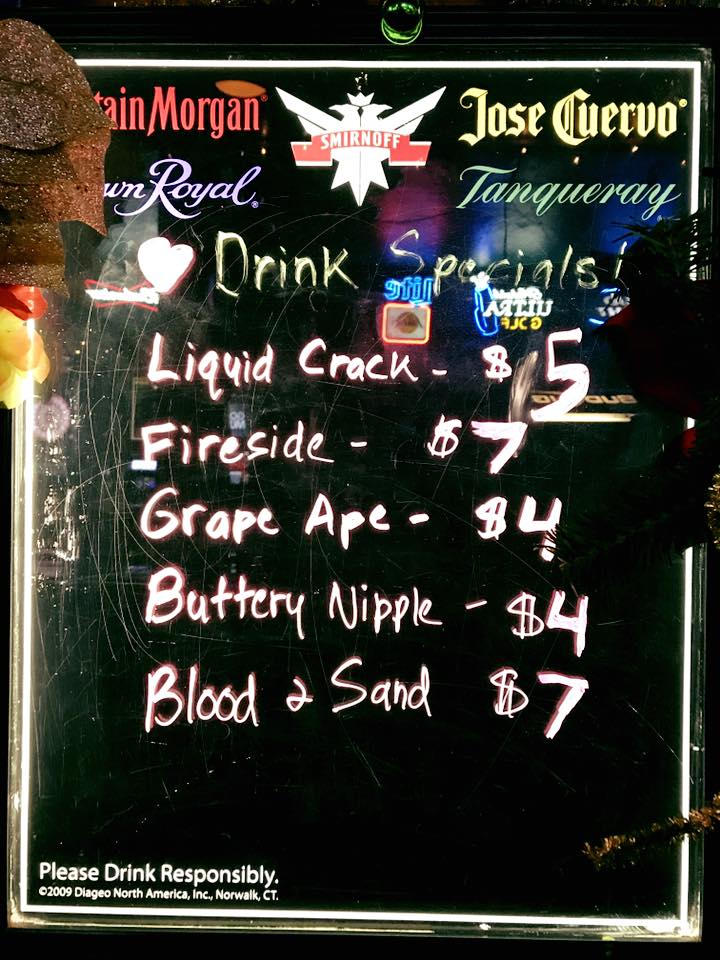 tain Morgan
SMIRNOFF
Jose Cuervo
wn Royal
Tanqueray
Drink Specials!
Liquid Crack - $5
Fireside - $7
Grape Ape - $4
Buttery Nipple - $4
Blood & Sand $7
Please Drink Responsibly.
©2009 Diageo North America, Inc., Norwalk, CT.